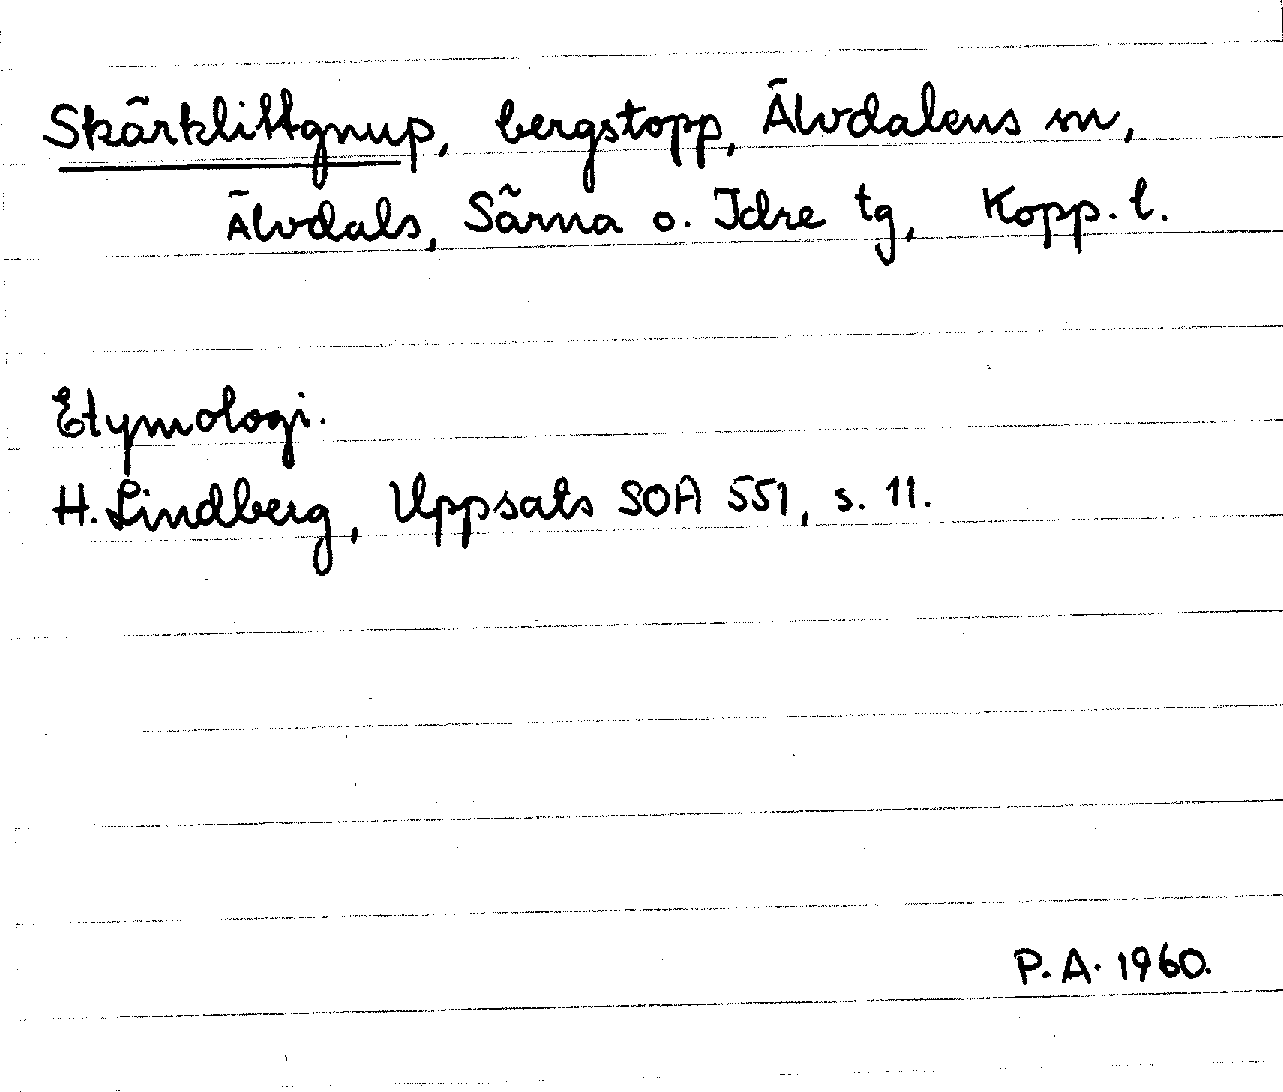 Skärklittgnup, bergstopp, Älvdalens sn,
Älvdals, Särna o. Idre tg, Kopp. l.
Etymologi.
H. Lindberg, Uppsats SOA 551, s. 11.
P. A. 1960.